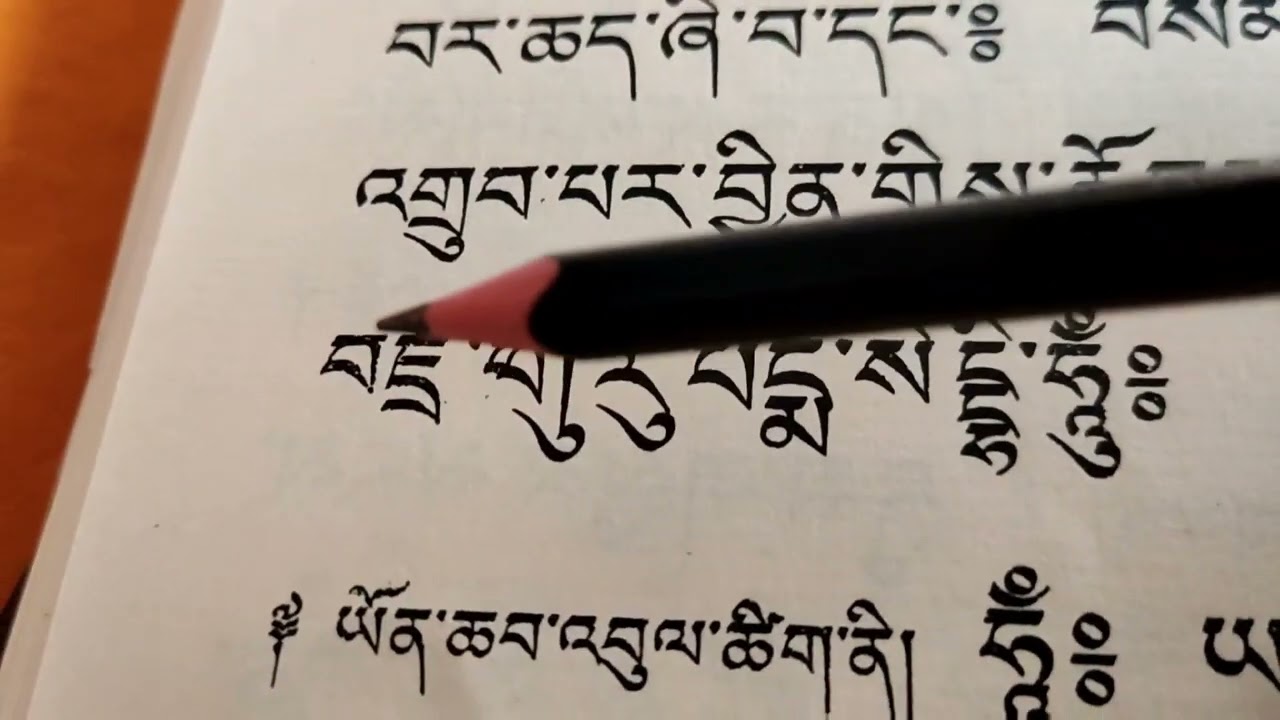 བར་ཆད་ཞི་བ་དང་༔ བསམ
འགྲུབ་པར་བྱིན་གྱིས་
བཛྲ་གུ་རུ་པདྨ་སིདྡྷི་ཧཱུྃ༔
༈ ཡོན་ཆབ་འབུལ་ཚིག་ནི། ཧཱུྃ༔